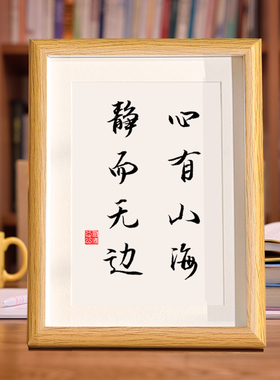 心有山海
静而无边